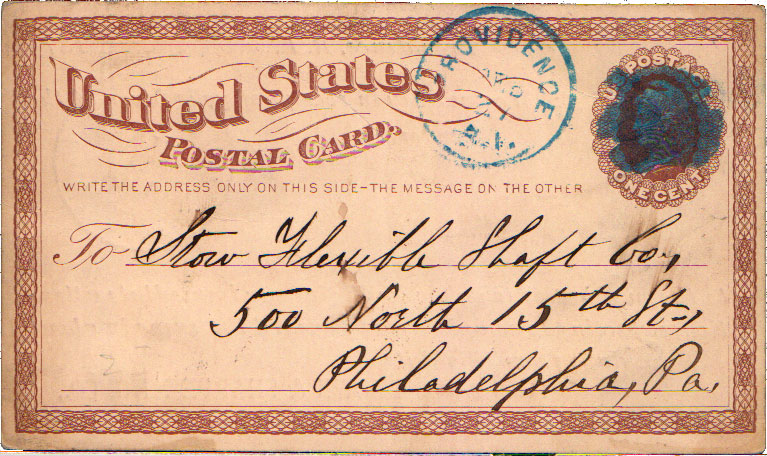 United States
POSTAL CARD.
PROVIDENCE
R.I.
U.S. POSTAGE
ONE CENT
WRITE THE ADDRESS ONLY ON THIS SIDE–THE MESSAGE ON THE OTHER
To Stow Flexible Shaft Co,
500 North 15th St.,
Philadelphia, Pa.